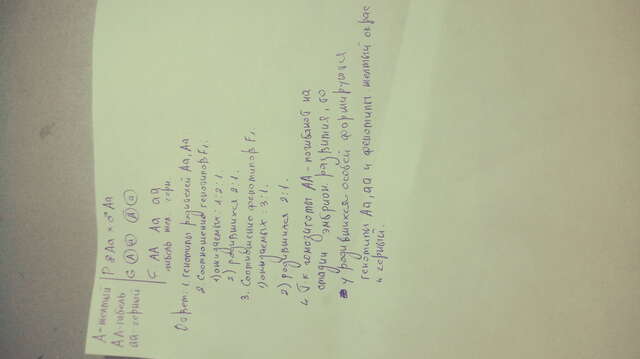 А-желтый
АА-гибель
аа-черный
P ♀Аа × ♂Аа
G А а А а
F АА Аа аа
гибель жел. черн.
Ответ: 1. генотипы родителей Аа, Аа
2. Соотношение генотипов F₁.
1) ожидаемых: 1:2:1.
2) родившихся 2:1.
3. Соотношение фенотипов F₁.
1) ожидаемых: 3:1.
2) родившихся 2:1.
4. Т.к гомозиготы АА-погибают на
стадии эмбрион. развития, то
у родившихся особей формируются
генотипы Аа, аа и фенотипы желтый окрас
и черный.